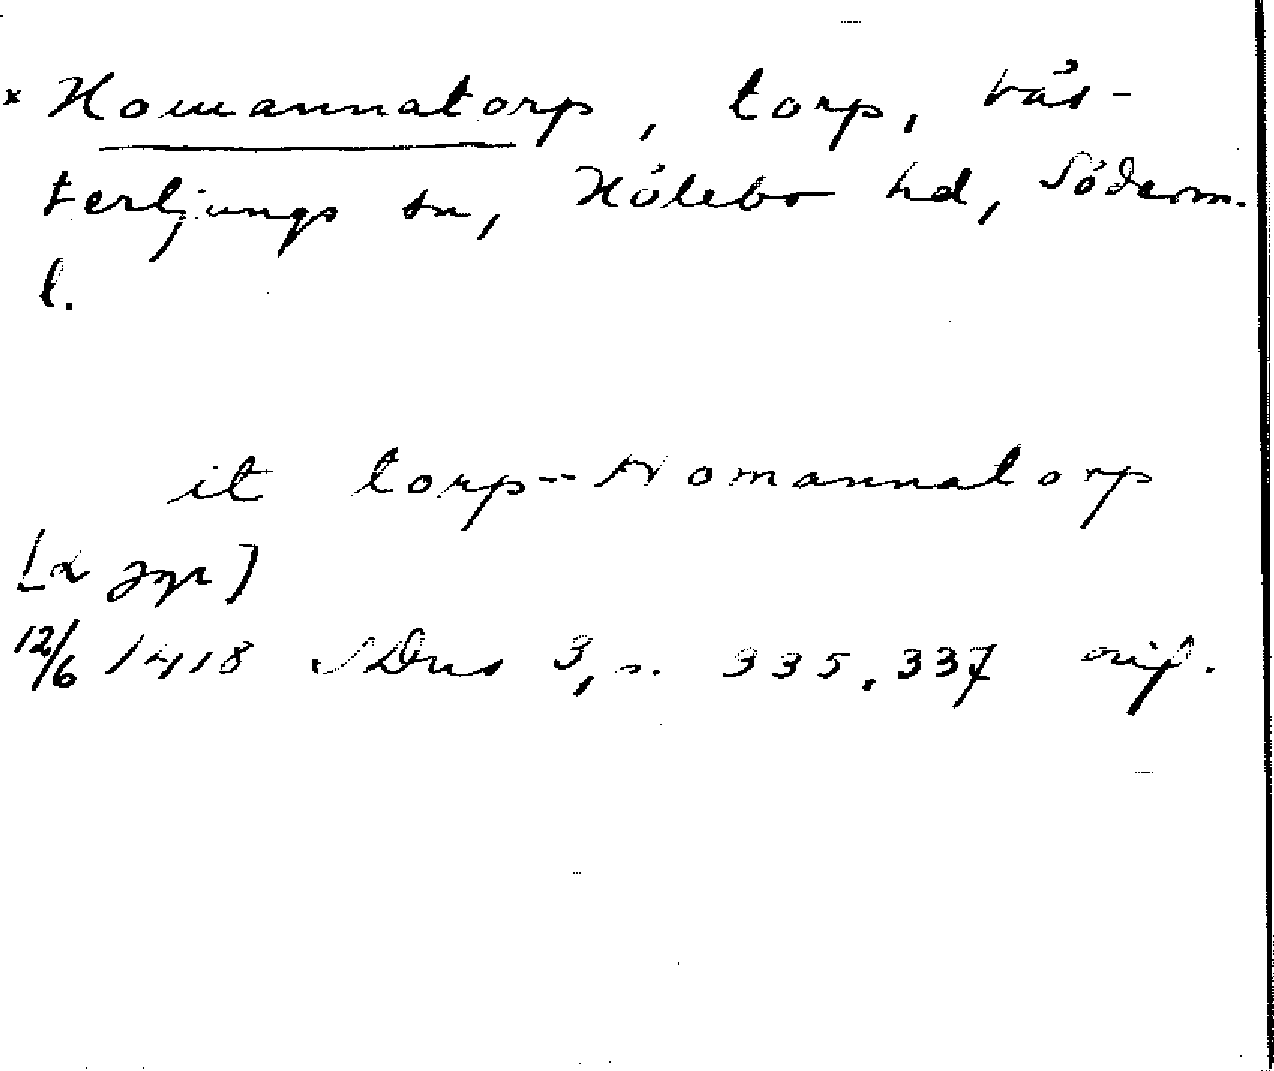 × Homannatorp, torp, Väs-
terljungs sn, Hölebo hd, Söderm.
l.
it torp -- Homannatorp
[
12/6 1418 SDns 3, s. 335, 337 orig.